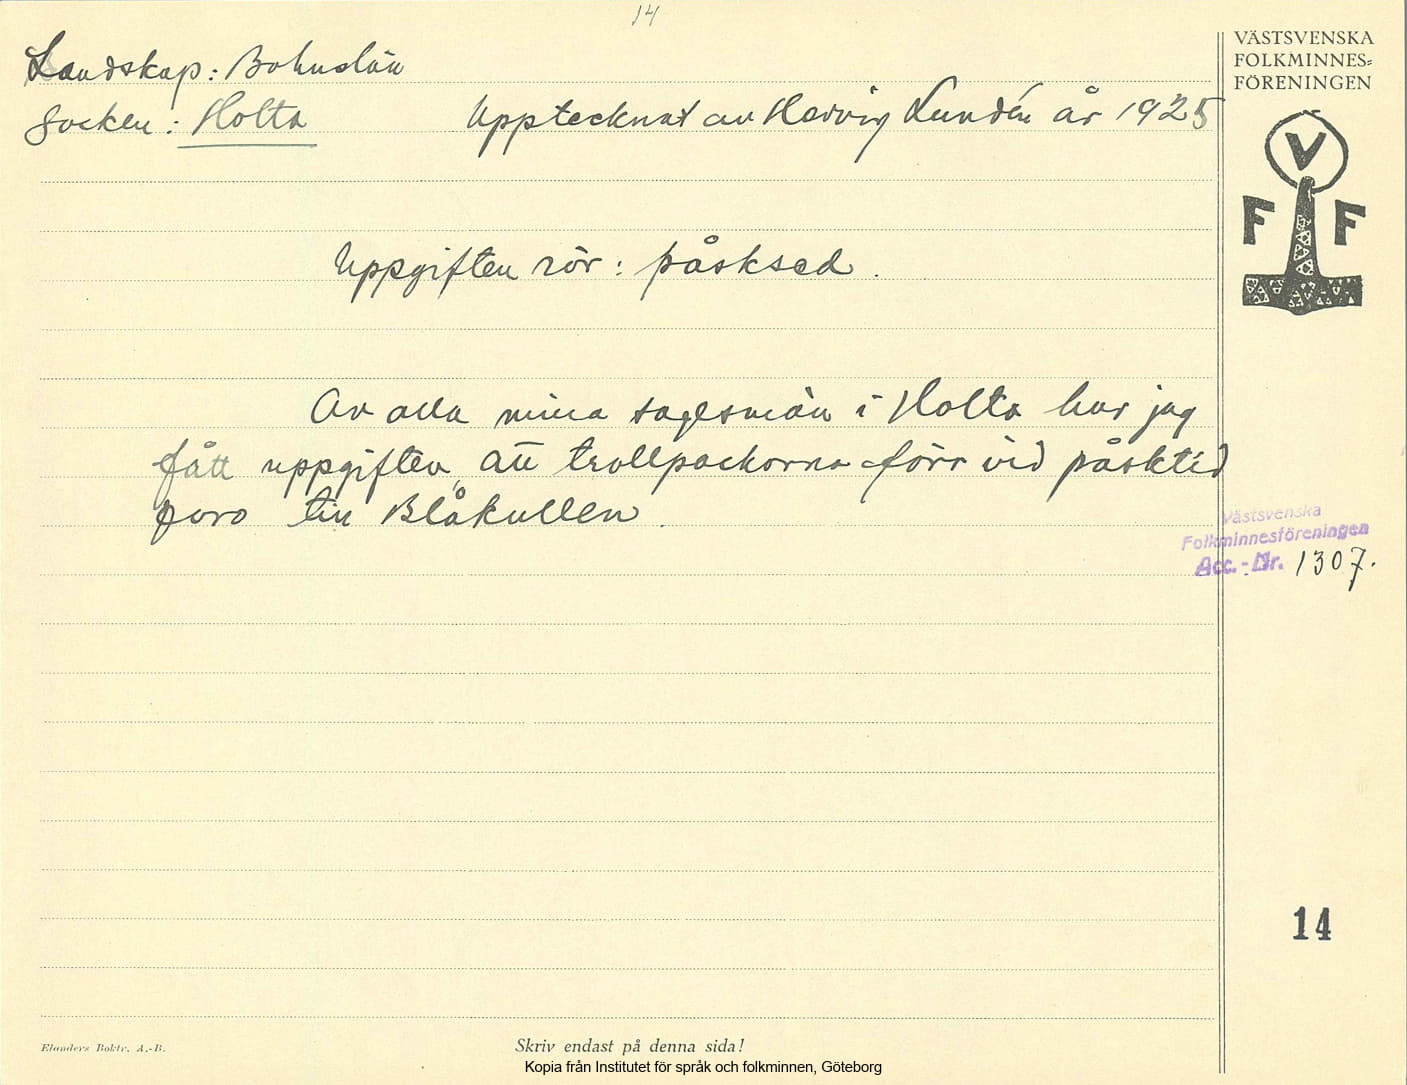 14
Landskap: Bohuslän
Socken: Holta Upptecknat av Hedvig Lundén år 1925
Uppgiften rör: påsksed.
Av alla mina sagesmän i Holta har jag
fått uppgiften, att trollpackorna förr vid påsktid
foro till Blåkullen.
VÄSTSVENSKA
FOLKMINNES=
FÖRENINGEN
V
F F
Västsvenska
Folkminnesföreningen
Acc.-Nr. 1307.
14
Elanders Boktr. A.-B.
Skriv endast på denna sida!
Kopia från Institutet för språk och folkminnen, Göteborg